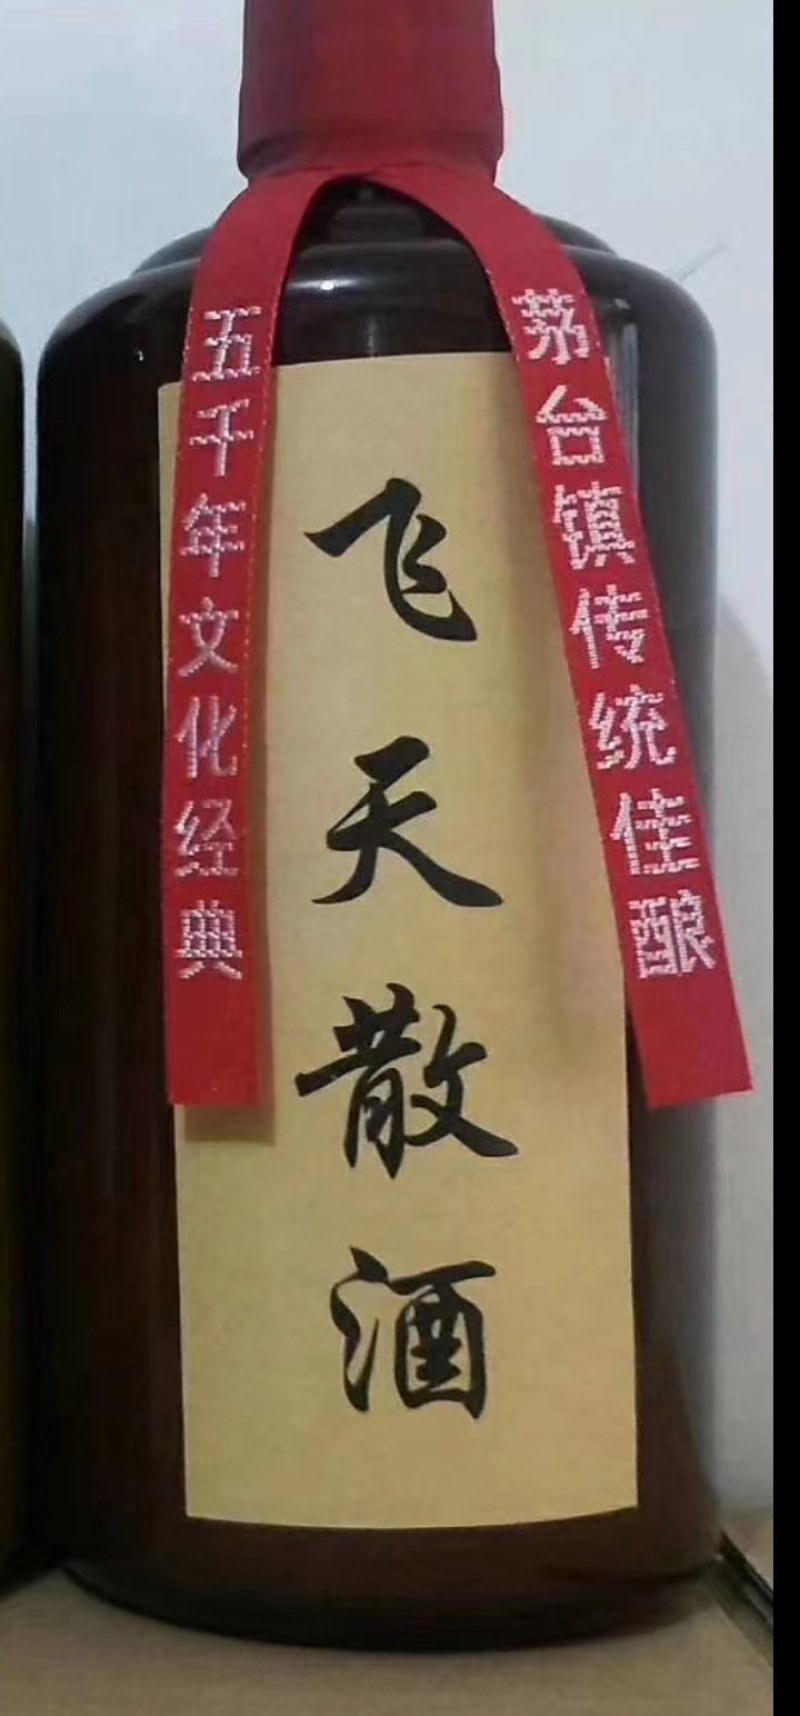 五千年文化经典
飞天散酒
茅台镇传统佳酿